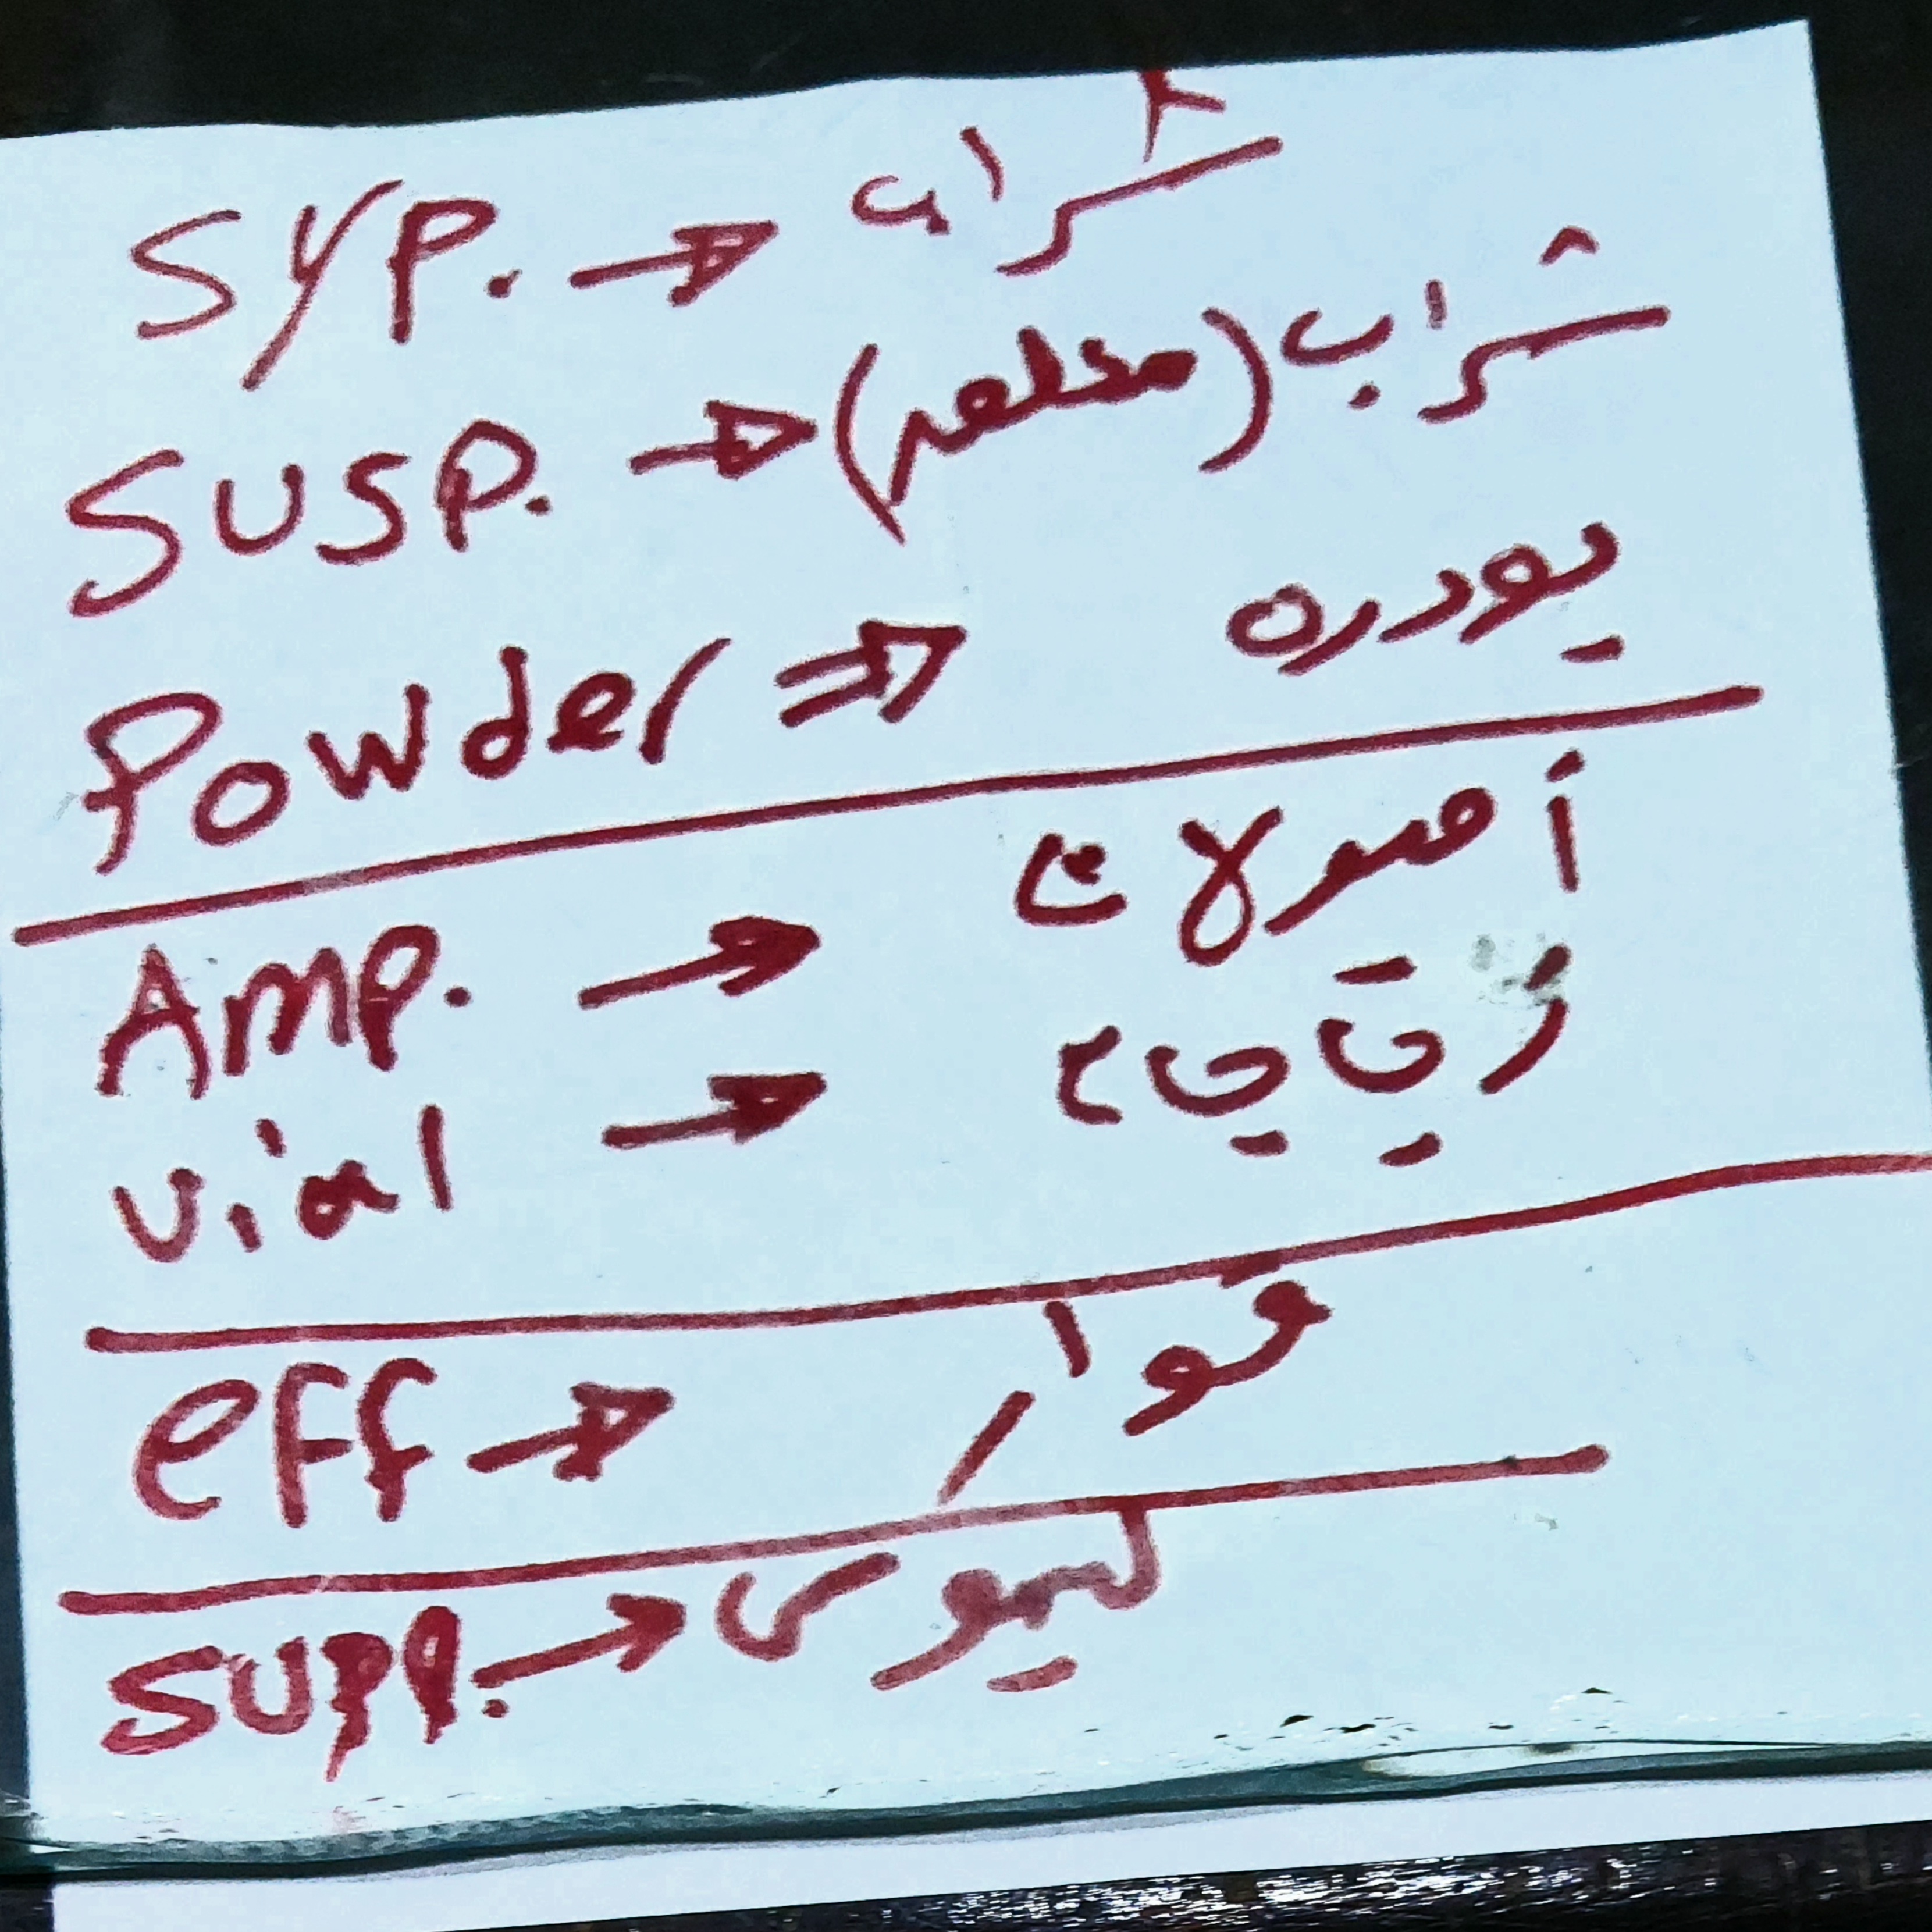 SYP. → شراب
SUSP. → شراب
Powder ⇒ بودره
Amp. → أمبولات
vial →
eff → فوار
supp. → لبوس